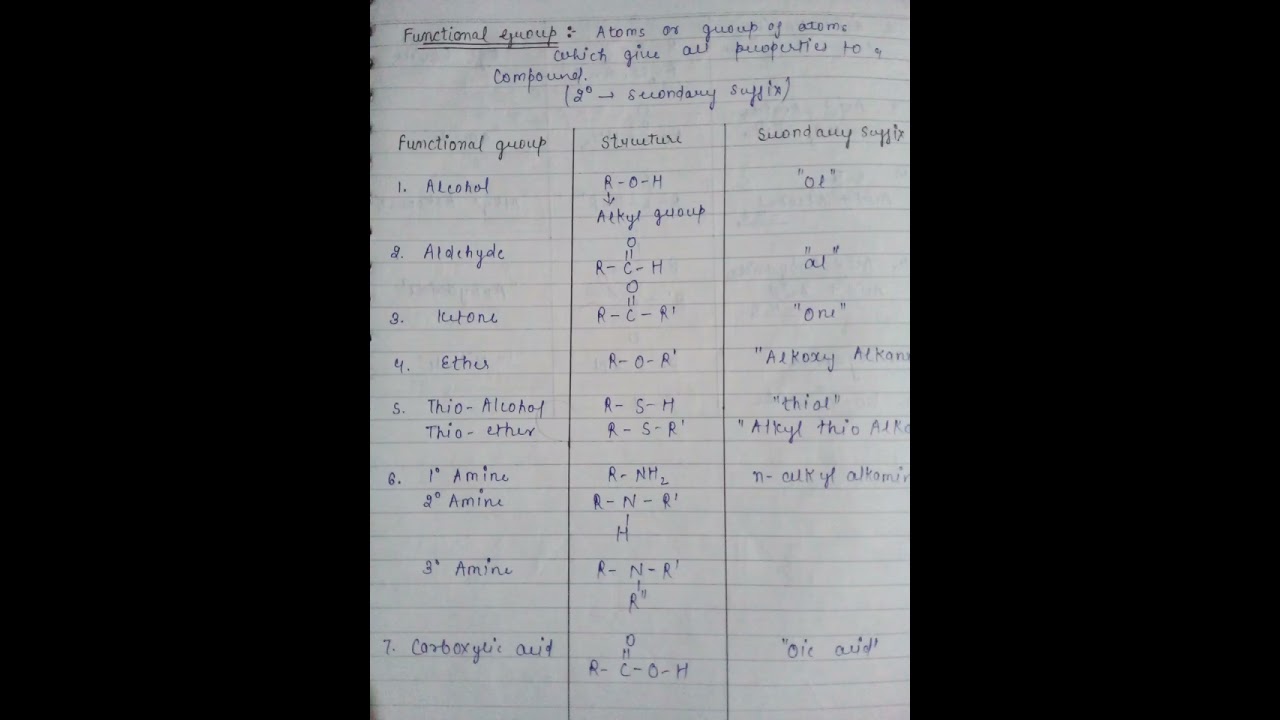 Functional group :- Atoms or group of atoms
which give all properties to a
Compound.
(2° → secondary suffix)
Functional group Structure Secondary suffix
1. Alcohol R-O-H "Ol"
↓
Alkyl group
O
||
2. Aldehyde R-C-H "al"
O
||
3. Ketone R-C-R' "One"
4. Ether R-O-R' "Alkoxy Alkan
5. Thio-Alcohol R-S-H "thiol"
Thio-ether R-S-R' "Alkyl thio Alka
6. 1° Amine R-NH₂ n-alkyl alkamin
2° Amine R-N-R'
|
H
3° Amine R-N-R'
|
R"
O
||
7. Carboxylic acid R-C-O-H "Oic acid"